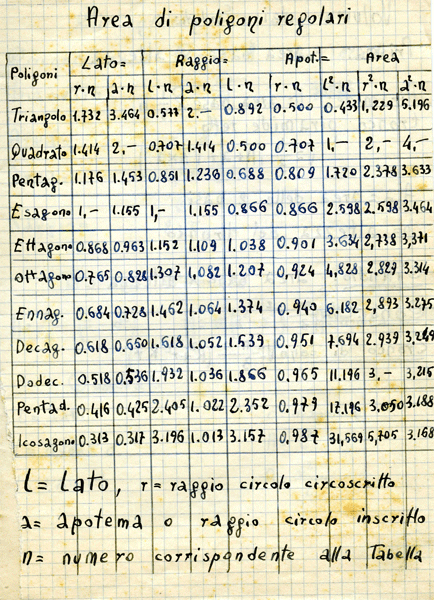 Area di poligoni regolari
Poligoni Lato= Raggio= Apot.= Area
r·n a·n l·n a·n l·n r·n l²·n r²·n a²·n
Triangolo 1.732 3.464 0.577 2.- 0.892 0.500 0.433 1,229 5.196
Quadrato 1.414 2,- 0.707 1.414 0.500 0.707 1,- 2,- 4,-
Pentag. 1.176 1.453 0.851 1.236 0.688 0.809 1.720 2.378 3.633
Esagono 1,- 1.155 1,- 1.155 0.866 0.866 2.598 2.598 3.464
Ettagono 0.868 0.963 1.152 1.109 1.038 0.901 3.634 2,738 3,371
Ottagono 0.765 0.828 1.307 1,082 1.207 0,924 4,828 2,829 3.314
Ennag. 0.684 0.728 1.462 1.064 1.374 0.940 6.182 2,893 3.275
Decag. 0.618 0.650 1.618 1.052 1.539 0.951 7.694 2.939 3,249
Dodec. 0.518 0.536 1.932 1.036 1.866 0.965 11.196 3,- 3,215
Pentad. 0.416 0.425 2.405 1.022 2.352 0.979 17.196 3.050 3.188
Icosagono 0.313 0.317 3.196 1.013 3.157 0,987 31,569 5,705 3.168
l= Lato, r= raggio circolo circoscritto
a= apotema o raggio circolo inscritto
n= numero corrispondente alla Tabella